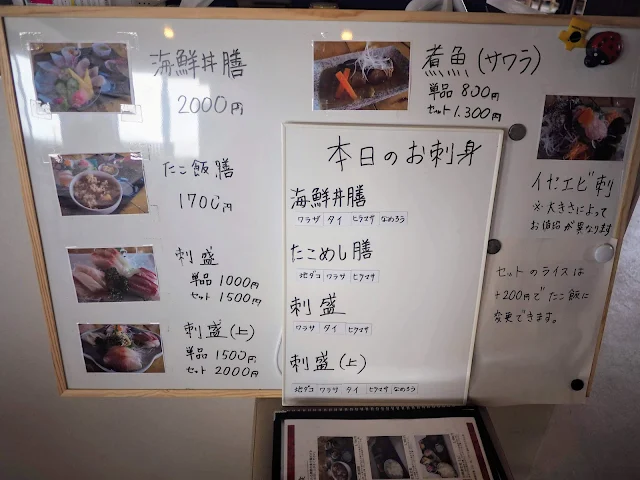 海鮮丼膳
2000円
たこ飯膳
1700円
刺盛
単品 1000円
セット 1500円
刺盛(上)
単品 1500円
セット 2000円
煮魚(サワラ)
単品 800円
セット 1,300円
本日のお刺身
海鮮丼膳
ワラサ タイ ヒラマサ なめろう
たこめし膳
地ダコ ワラサ ヒラマサ
刺盛
ワラサ タイ ヒラマサ
刺盛(上)
地ダコ ワラサ タイ ヒラマサ なめろう
イセエビ刺
※大きさによって
お値段が異なります
セットのライスは
+200円でたこ飯に
変更できます。